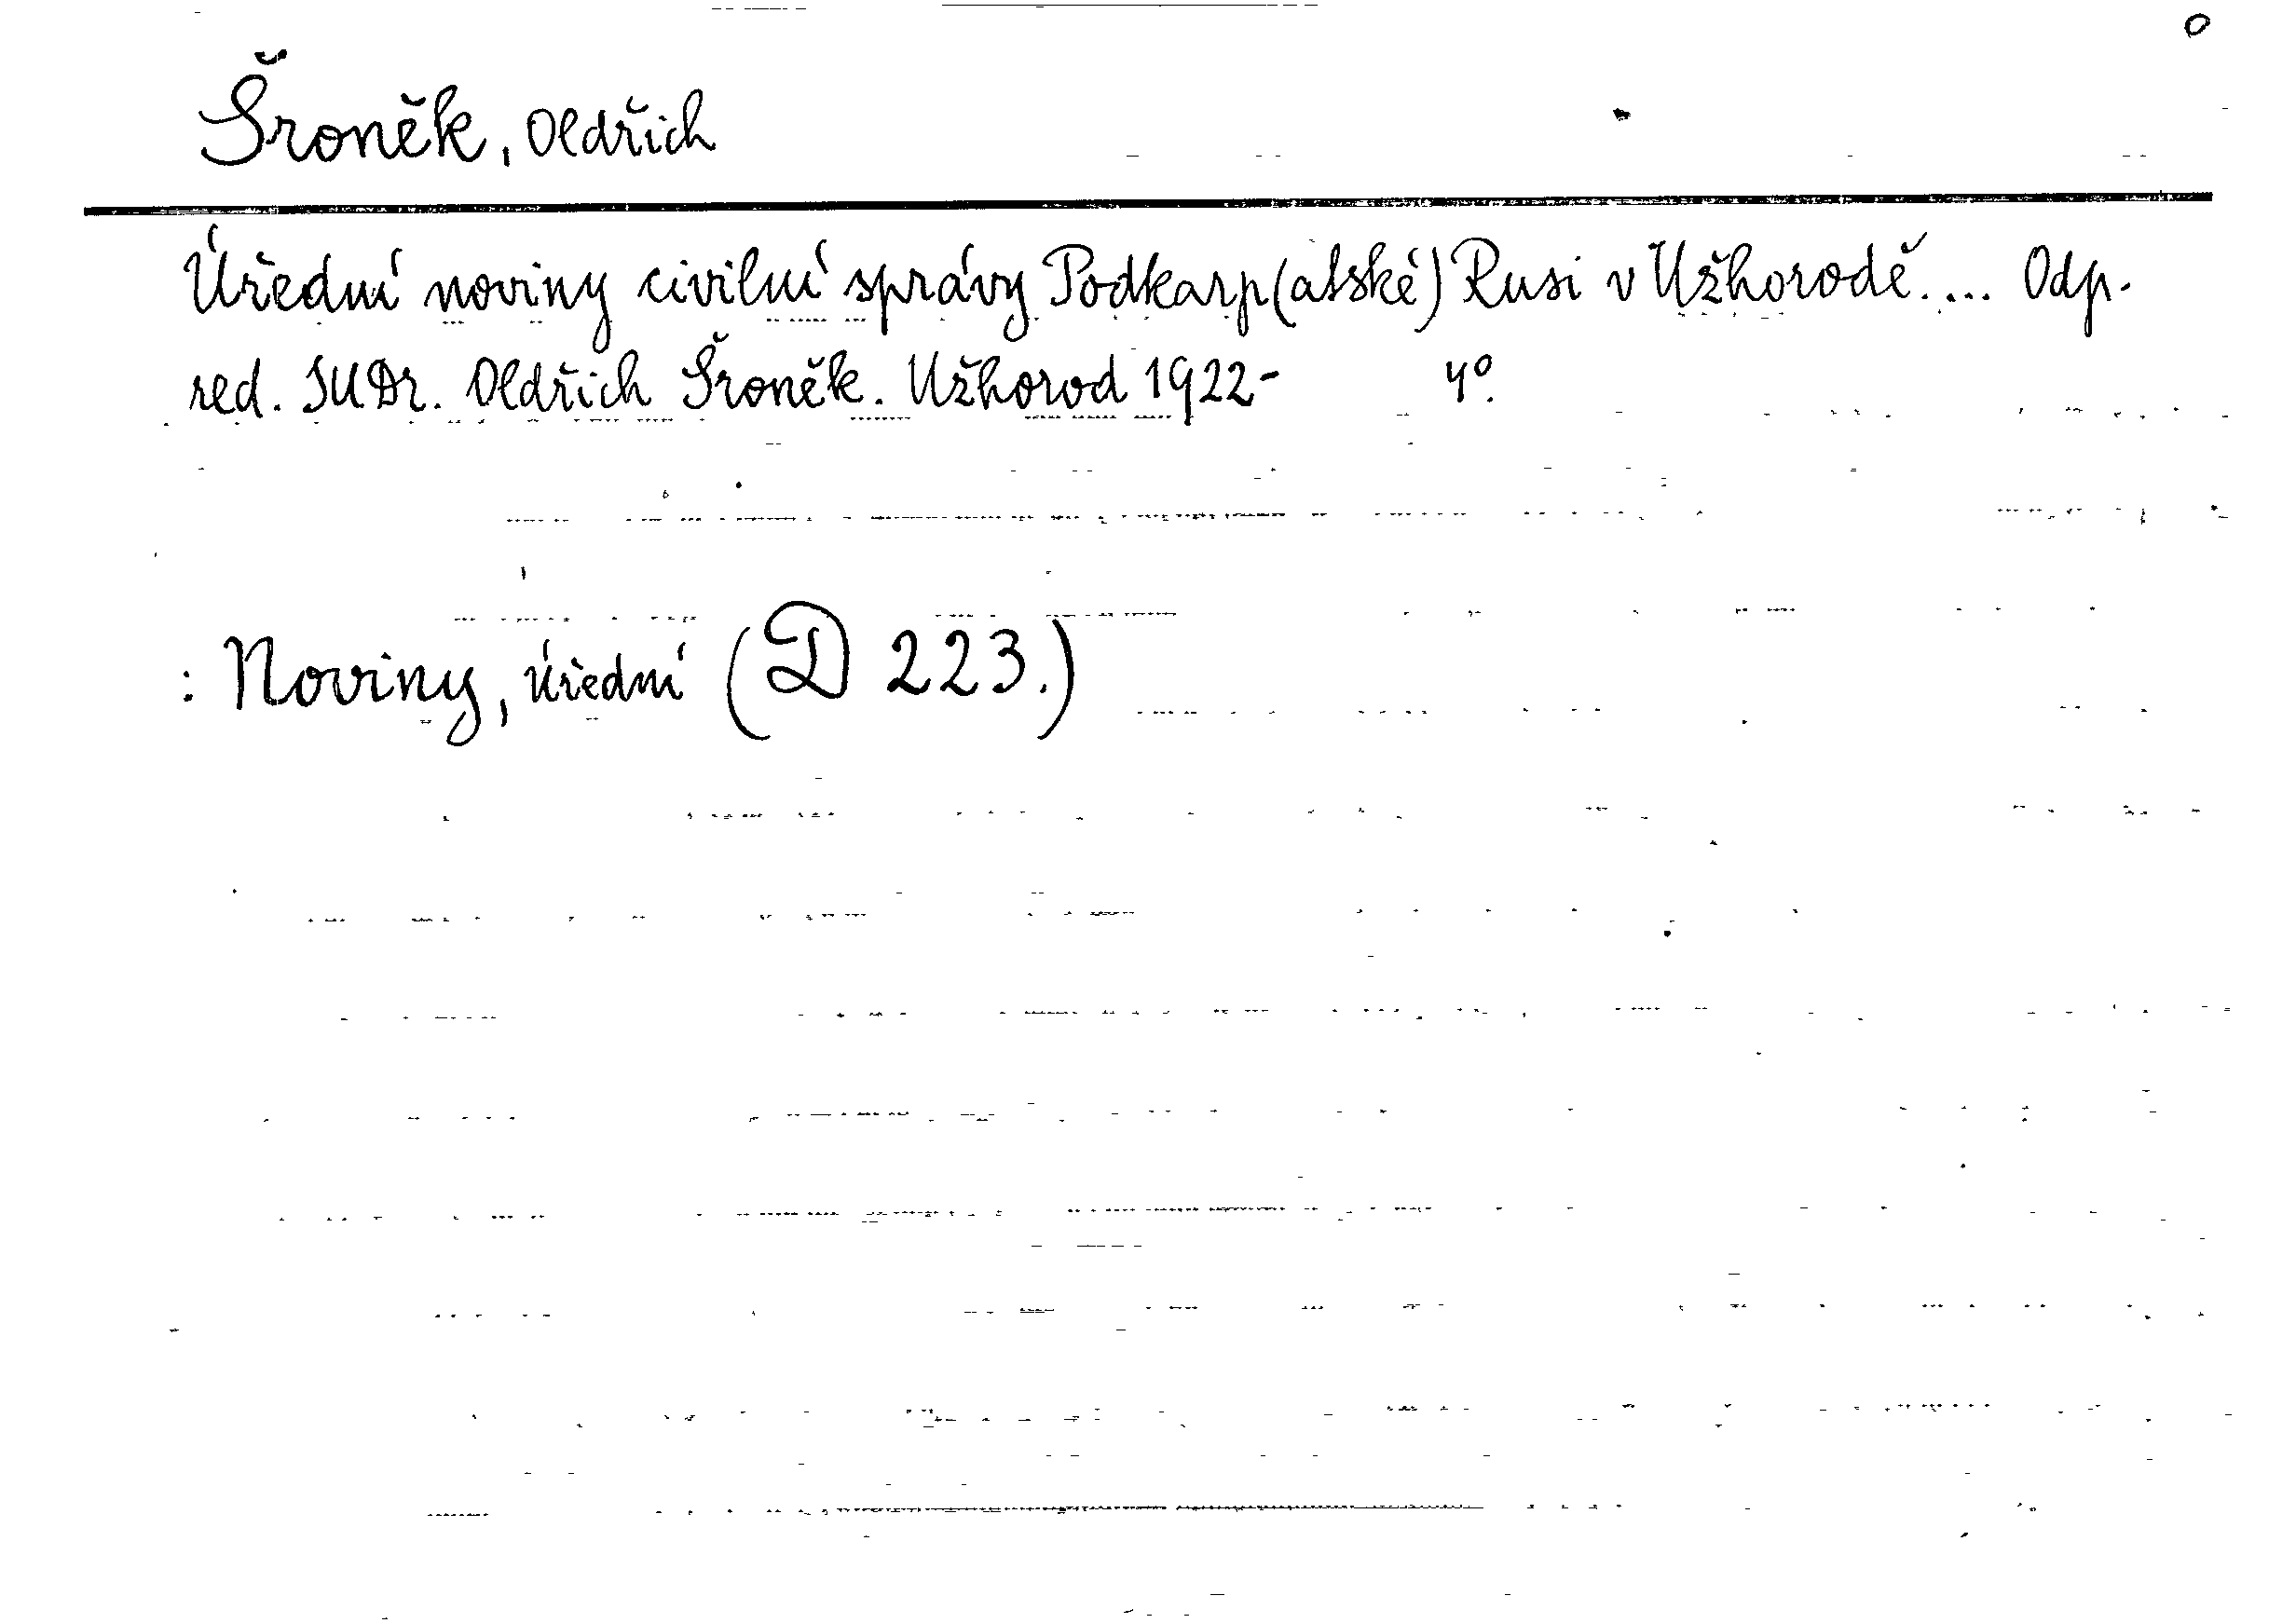 Šroněk, Oldřich
Úřední noviny civilní správy Podkarp(atské) Rusi v Užhorodě.... Odp.
red. JUDr. Oldřich Šroněk. Užhorod 1922- 4º.
: Noviny, úřední (D 223.)